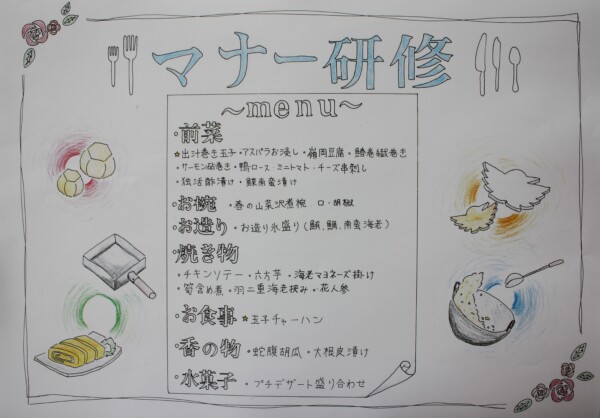 マナー研修
~menu~
・前菜
☆出汁巻き玉子・アスパラお浸し・福岡豆腐・鱒巻繊巻き
・サーモン砧巻き・鴨ロース・ミニトマト・チーズ串刺し
・独活酢漬け・鯡南蛮漬け
・お椀 ・春の山菜沢煮椀 口・胡椒
・お造り ・お造り氷盛り(鮪、鯛、南蛮海老)
・焼き物
・チキンソテー・六方芋・海老マヨネーズ掛け
・筍含め煮・羽二重海老挟み・花人参
・お食事 ☆玉子チャーハン
・香の物 ・蛇腹胡瓜・大根皮漬け
・水菓子 ・プチデザート盛り合わせ